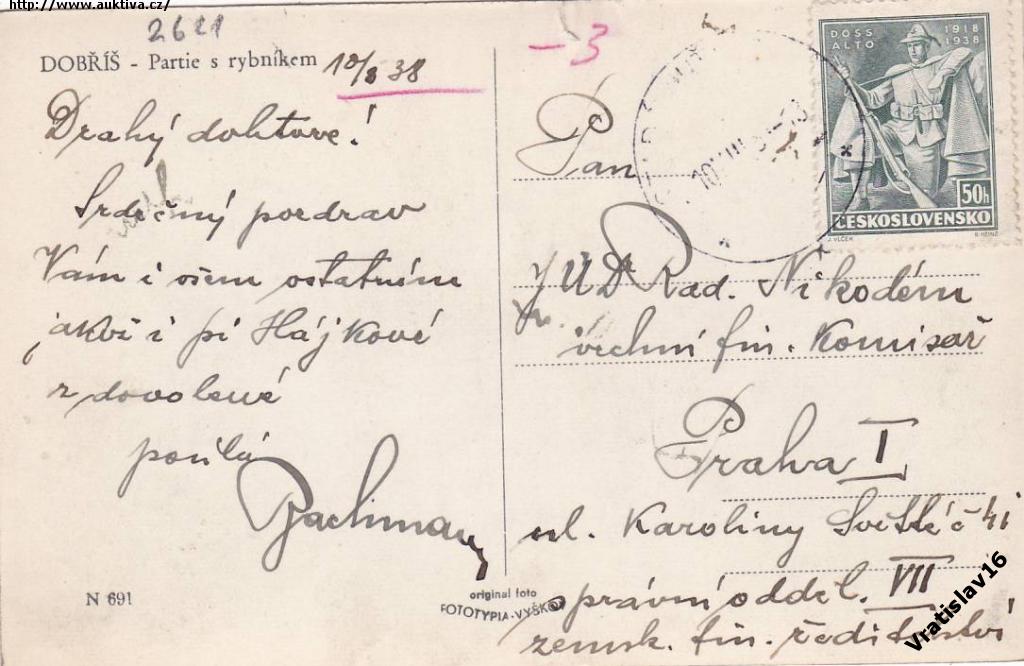 http://www.auktiva.cz/
2621
DOBŘÍŠ - Partie s rybníkem 10/8 38
Drahý doktore!
Srdečný pozdrav
Vám i všem ostatním
jakož i pí Hájkové
z dovolené
posílá
Bachmann
N 691
original foto
FOTOTYPIA-VYŠKOV
-3
DOSS ALTO
1918
1938
50h
ČESKOSLOVENSKO
J. VLČEK
B. HEINZ
Pan
JUDr Rad. Nikodém
vrchní fin. komisař
Praha I
ul. Karoliny Světlé č 41
správní odděl. VII
zemsk. fin. ředitelství
Vratislav16